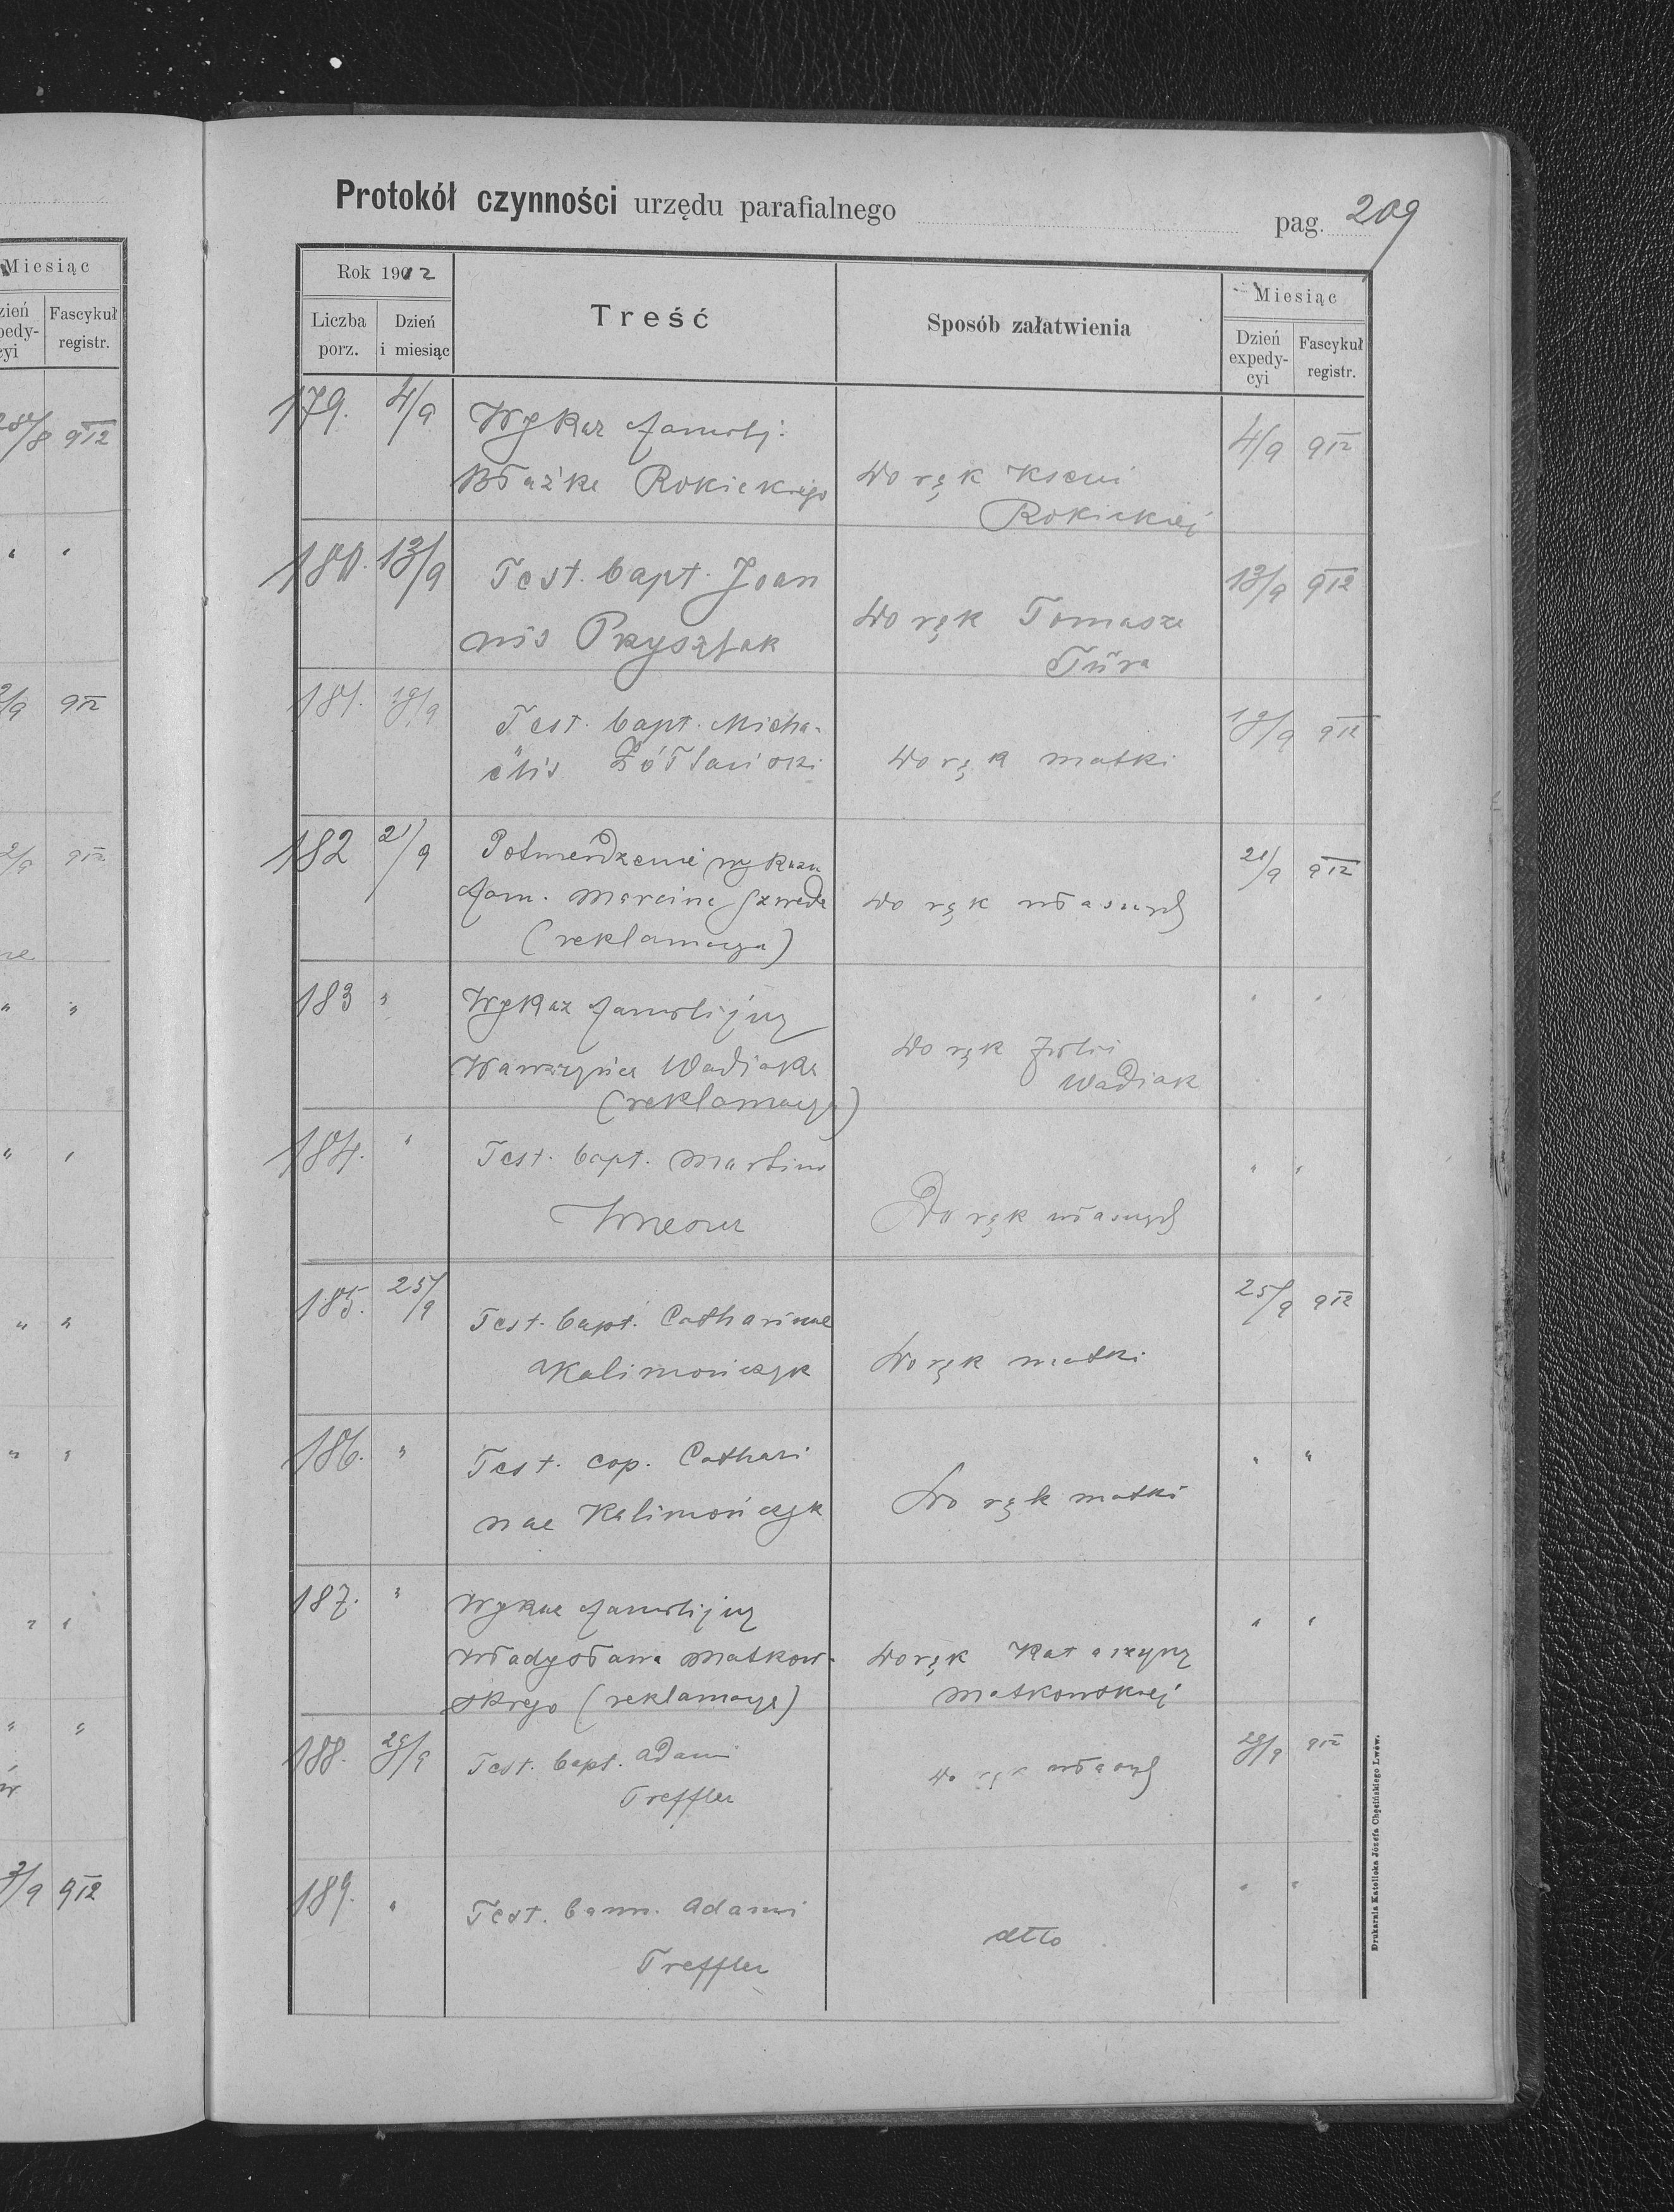 Miesiąc
Fascykuł
registr.
28/8 912
" "
2/9 912
2/9 912
" "
" "
" "
" "
" "
" "
3/9 912
Protokół czynności urzędu parafialnego
pag. 209
Rok 1912
Liczba porz.
Dzień i miesiąc
Treść
Sposób załatwienia
Miesiąc
Dzień expedycyi
Fascykuł registr.
179. 4/9 Wykaz familij. 4/9 912
Błażka Rokickiego Do rąk Kseni
Rokickiej
180. 13/9 Test. bapt. Joan 13/9 912
nis Przysztak Do rąk Tomasza
181. 19/9 Test. bapt. Micha- 19/9 912
elis Do rąk matki
182 21/9 Potwierdzenie wykazu 21/9 912
fam. Marcina Szweda Do rąk własnych
(reklamacya)
183 " Wykaz familijny " "
Wawrzyńca Wadiaka Do rąk Zofii
(reklamacya) Wadiak
184. " Test. bapt. Martini " "
Do rąk własnych
185. 25/9 Test. bapt. Catharinae 25/9 912
Kalimończyk Do rąk matki
186. " Test. cop. Cathari " "
nae Kalimończyk Do rąk matki
187. " Wykaz familijny " "
Władysława Matkow- Do rąk Katarzyny
skiego (reklamacya) Matkowskiej
188. 29/9 Test. bapt. Adami 29/9 912
Treffler Do rąk własnych
189. " Test. bann. Adami " "
Treffler dtto
Drukarnia Katolicka Józefa Chęcińskiego Lwów.